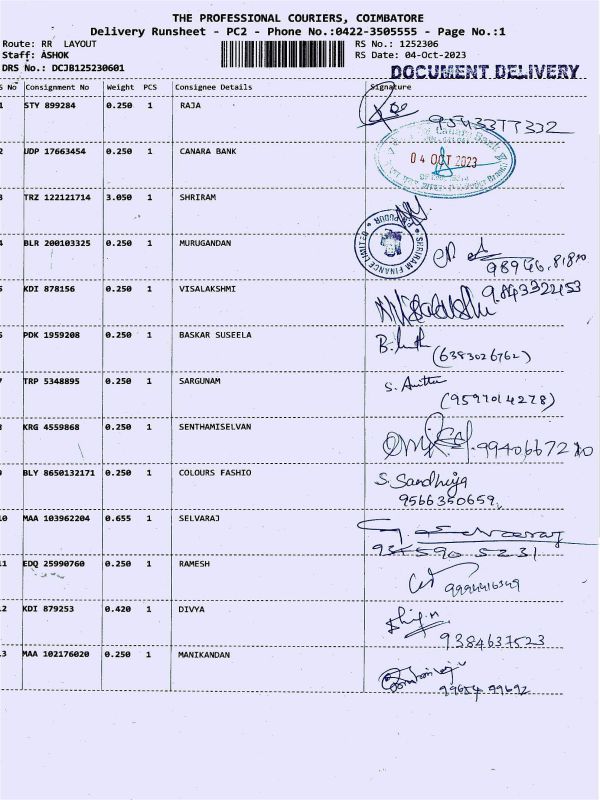 THE PROFESSIONAL COURIERS, COIMBATORE
Delivery Runsheet - PC2 - Phone No.:0422-3505555 - Page No.:1
Route: RR LAYOUT RS No.: 1252306
Staff: ASHOK RS Date: 04-Oct-2023
DRS No.: DCJB125230601 DOCUMENT DELIVERY
S No Consignment No Weight PCS Consignee Details Signature
1 STY 899284 0.250 1 RAJA
9543377332
2 UDP 17663454 0.250 1 CANARA BANK Canara Bank
04 OCT 2023
3 TRZ 122121714 3.050 1 SHRIRAM
SHRIRAM FINANCE LIMITED
4 BLR 200103325 0.250 1 MURUGANDAN
98946.81810
5 KDI 878156 0.250 1 VISALAKSHMI 9843322153
6 PDK 1959208 0.250 1 BASKAR SUSEELA
(6383026762)
7 TRP 5348895 0.250 1 SARGUNAM S. Anitha
(9597014278)
8 KRG 4559868 0.250 1 SENTHAMISELVAN
9940667210
9 BLY 8650132171 0.250 1 COLOURS FASHIO S. Sandhiya
9566350659
10 MAA 103962204 0.655 1 SELVARAJ
934590 5231
11 EDQ 25990760 0.250 1 RAMESH
9994416349
12 KDI 879253 0.420 1 DIVYA
9384637523
13 MAA 102176020 0.250 1 MANIKANDAN
99654 99692